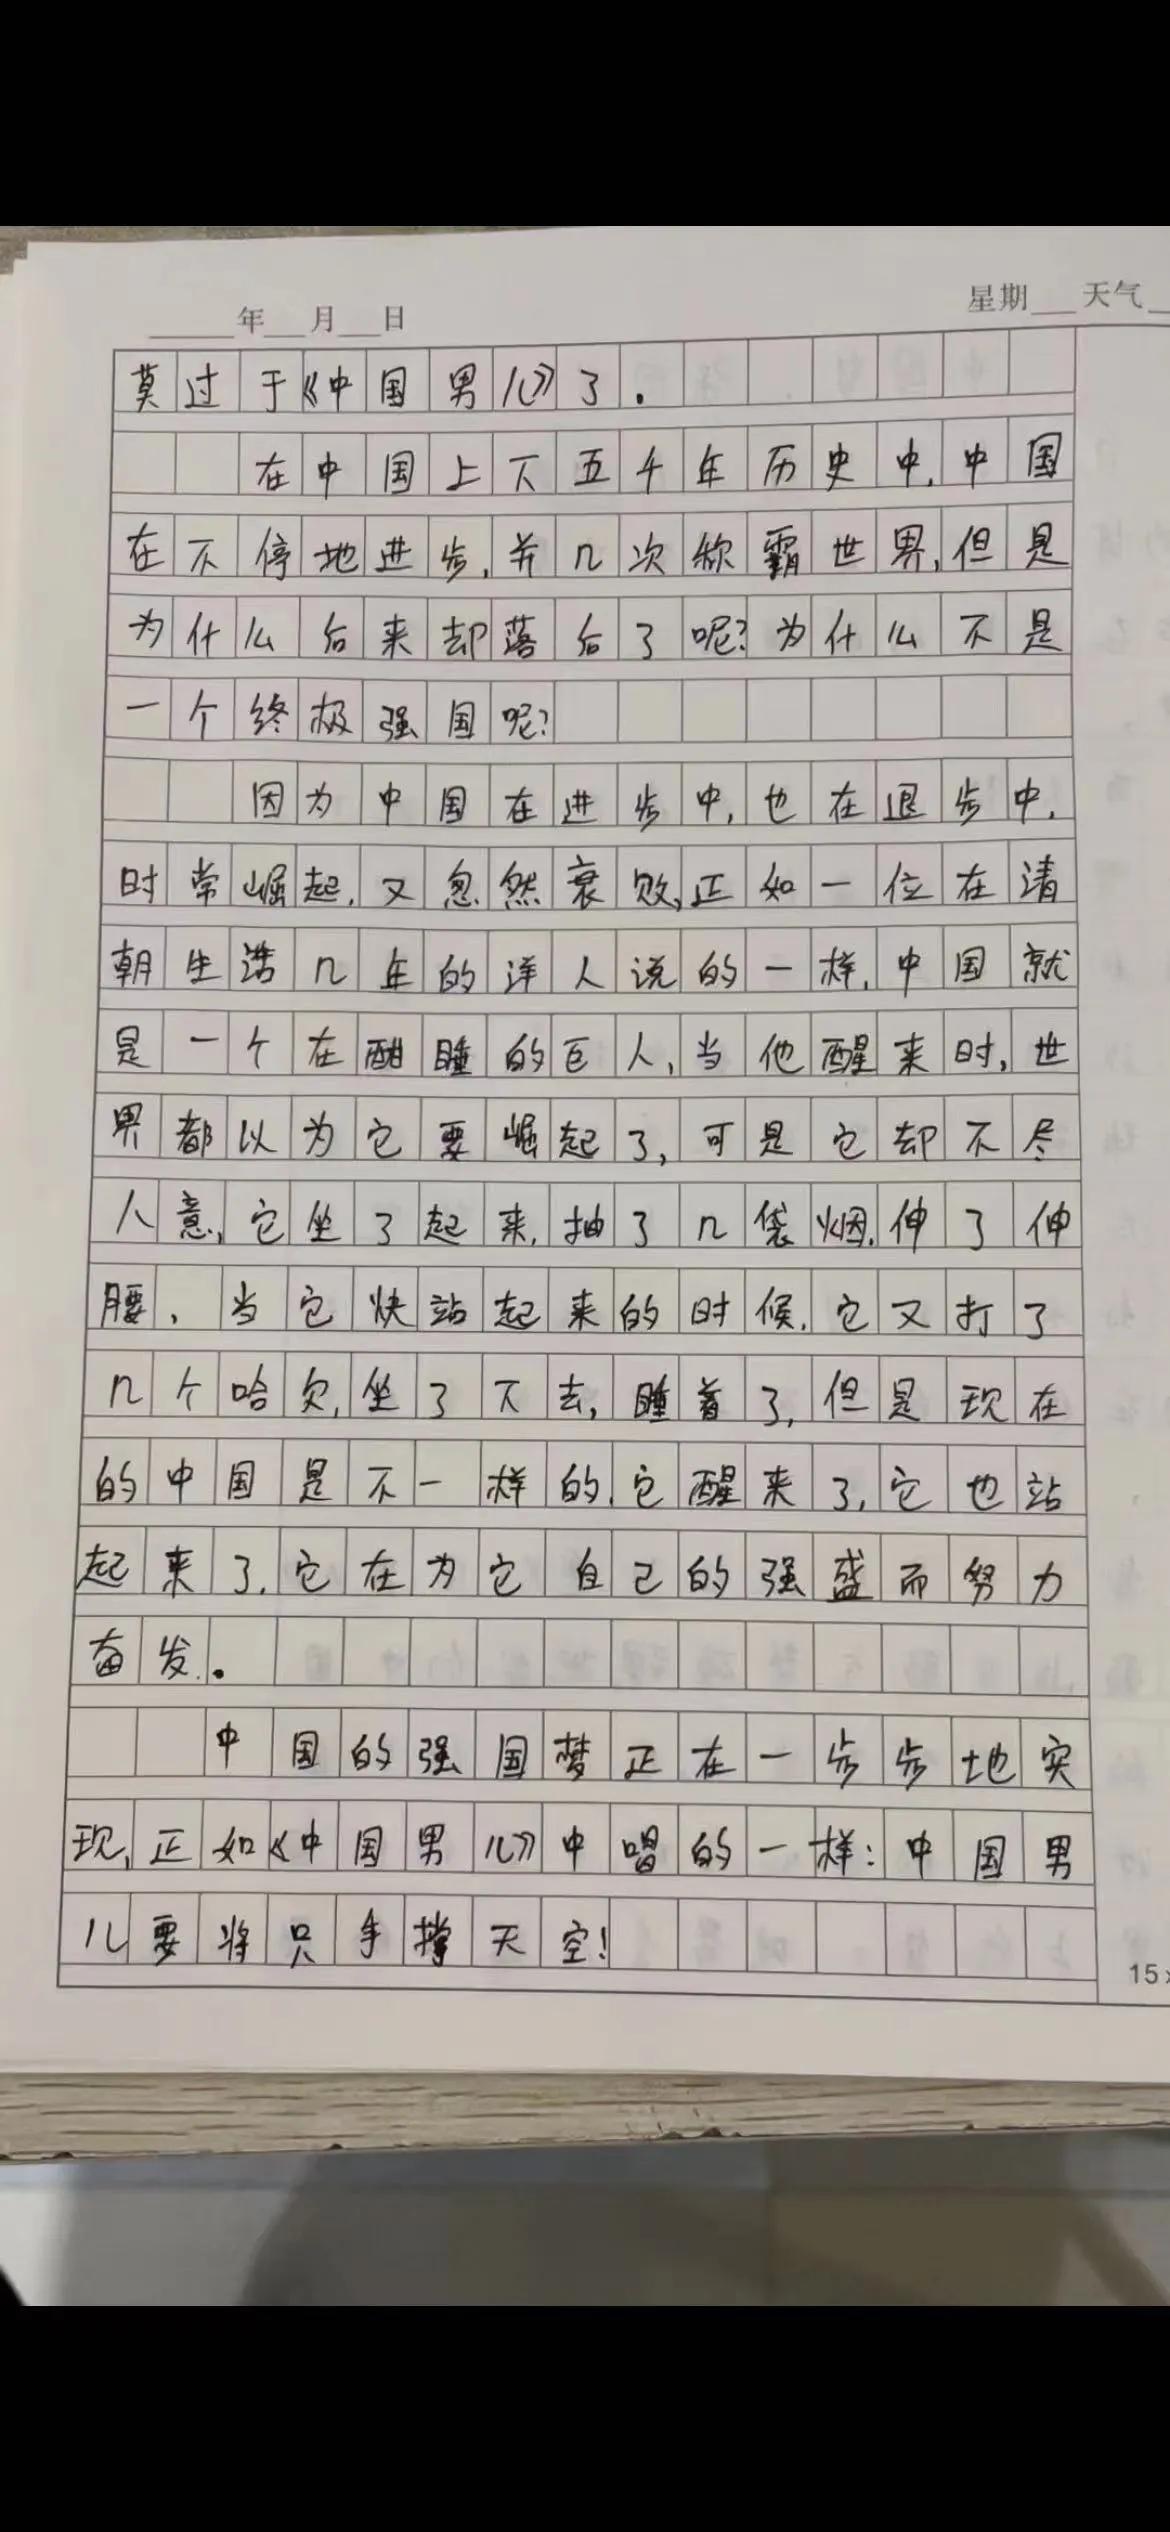 ____年__月__日
星期__天气
莫过于《中国男儿》了.
在中国上下五千年历史中,中国
在不停地进步,并几次称霸世界,但是
为什么后来却落后了呢?为什么不是
一个终极强国呢?
因为中国在进步中,也在退步中,
时常崛起,又忽然衰败,正如一位在清
朝生活几年的洋人说的一样,中国就
是一个在酣睡的巨人,当他醒来时,世
界都以为它要崛起了,可是它却不尽
人意,它坐了起来,抽了几袋烟,伸了伸
腰,当它快站起来的时候,它又打了
几个哈欠,坐了下去,睡着了,但是现在
的中国是不一样的,它醒来了,它也站
起来了,它在为它自己的强盛而努力
奋发.
中国的强国梦正在一步步地实
现,正如《中国男儿》中唱的一样:中国男
儿要将只手撑天空!
15